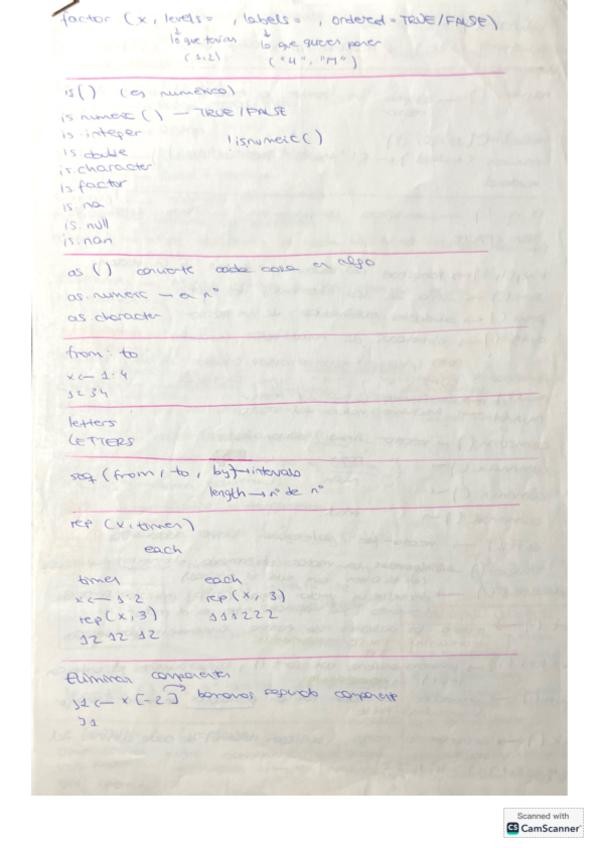 factor (x, levels= , labels= , ordered = TRUE/FALSE)
↓ ↓
lo que tenías lo que quieres poner
(1,2) ("H", "M")
is() (es numérico)
is numeric () — TRUE/FALSE
is integer !isnumeric()
is. double
is. character
is factor
is. na
is. null
is. nan
as () convierte cada cosa en algo
as. numeric — en nº
as character
from: to
x <— 1:4
1234
letters
LETTERS
seq (from, to, by) → intervalo
length → nº de nº
rep (x, times)
each
times each
x <— 1:2 rep(x, 3)
rep(x, 3) 111222
12 12 12
Eliminar componentes
y1 <— x [-2] → borramos segundo componente
y1
Scanned with
CS CamScanner